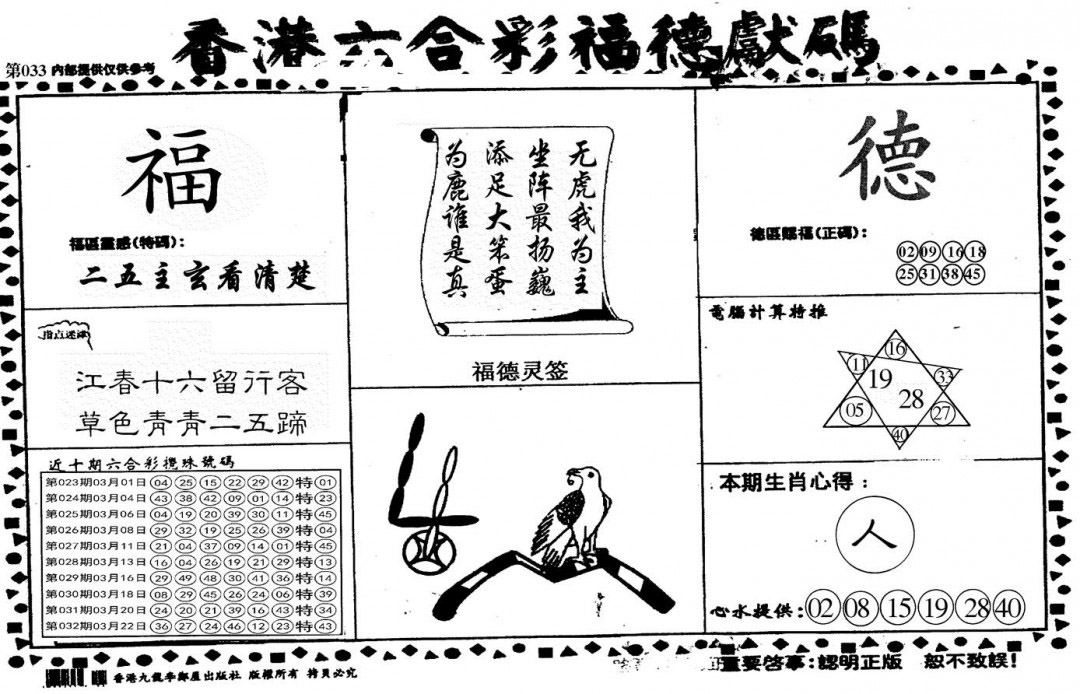 香港六合彩福德獻碼
第033 內部提供仅供参考
福
福區靈感(特碼):
二五主玄看清楚
指点迷津
江春十六留行客
草色青青二五蹄
近十期六合彩攪珠號碼
第023期03月01日 04 25 15 22 29 42 特 01
第024期03月04日 43 38 42 09 01 14 特 23
第025期03月06日 04 19 20 39 30 11 特 45
第026期03月08日 29 32 19 25 26 39 特 04
第027期03月11日 21 04 37 09 14 01 特 45
第028期03月13日 16 04 26 19 21 29 特 13
第029期03月16日 29 49 48 30 41 36 特 14
第030期03月18日 08 29 45 26 24 06 特 39
第031期03月20日 24 20 21 39 16 43 特 34
第032期03月22日 36 27 24 46 12 23 特 43
无虎我为主
坐阵最扬巍
添足大笨蛋
为鹿谁是真
福德灵签
德
德區賜福(正碼):
02 09 16 18
25 31 38 45
電腦計算特推
16
11
33
19
28
05
27
40
本期生肖心得:
人
心水提供: 02 08 15 19 28 40
香港九龍李鄭屋出版社 版權所有 拷貝必究
重要啓事:認明正版 恕不致誤!